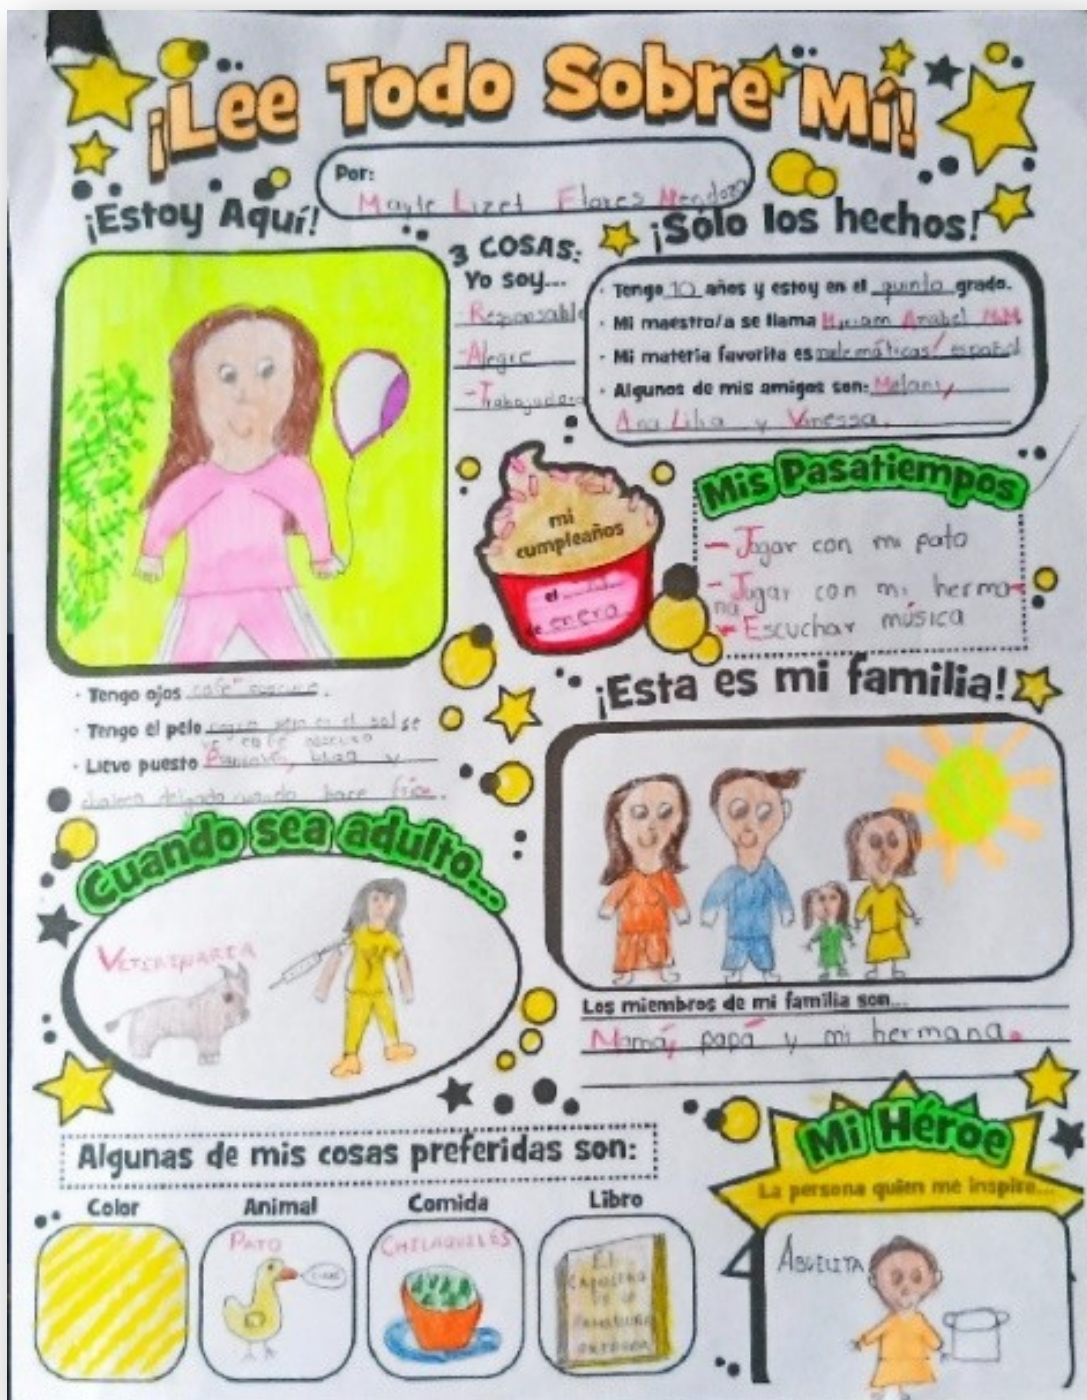 ¡Lee Todo Sobre Mí!
Por:
Lizet Flores Mendoza
¡Estoy Aquí!
3 COSAS:
Yo soy...
- Responsable
- Alegre
- Trabajadora
¡Sólo los hechos!
· Tengo 10 años y estoy en el quinto grado.
· Mi maestro/a se llama Miriam Anabel M.M.
· Mi materia favorita es matemáticas/ español
· Algunos de mis amigos son: Melany,
Ana Lilia y Vanessa.
mi
cumpleaños
el
de enero
Mis Pasatiempos
- Jugar con mi pato
- Jugar con mi herma-
na
- Escuchar música
· Tengo ojos café oscuro.
· Tengo el pelo negro pero en el sol se
ve café oscuro
· Llevo puesto blusa y
chaleco delgado cuando hace frío.
¡Esta es mi familia!
Cuando sea adulto...
VETERINARIA
Los miembros de mi familia son...
Mamá, papá y mi hermana.
Algunas de mis cosas preferidas son:
Color
Animal
Comida
Libro
PATO
CHILAQUILES
EL
DE LA
Mi Héroe
La persona quien me inspira...
ABUELITA